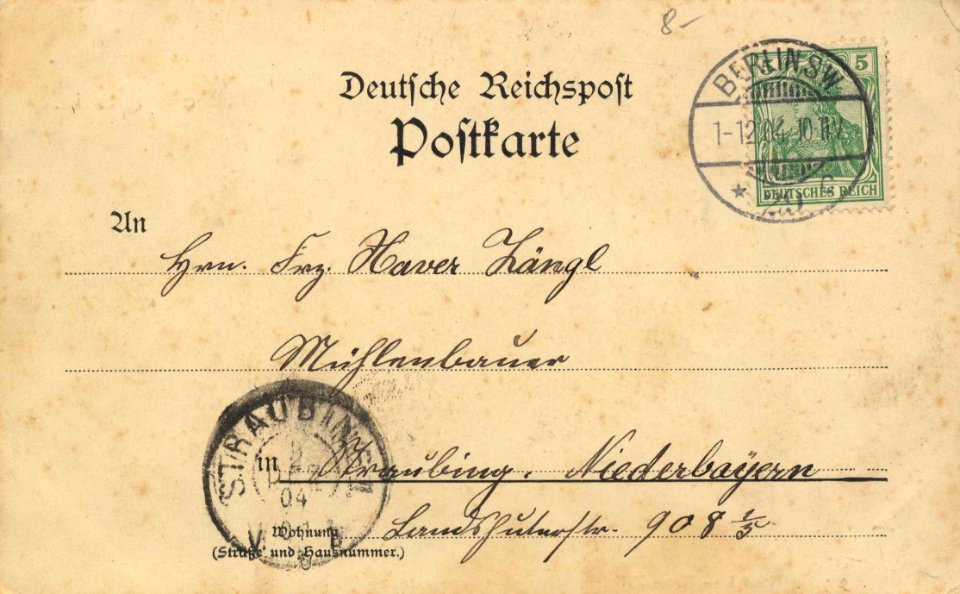 8-
BERLIN S.W.
1-12.04.10-11V.
5
DEUTSCHES REICH
Deutsche Reichspost
Postkarte
An
Hrn. Frz. Xaver Zängl
Mühlenbauer
STRAUBING
2
DEZ
04
V b
in Straubing, Niederbayern
Landshuterstr. 908 1/5
Wohnung
(Straße und Hausnummer.)